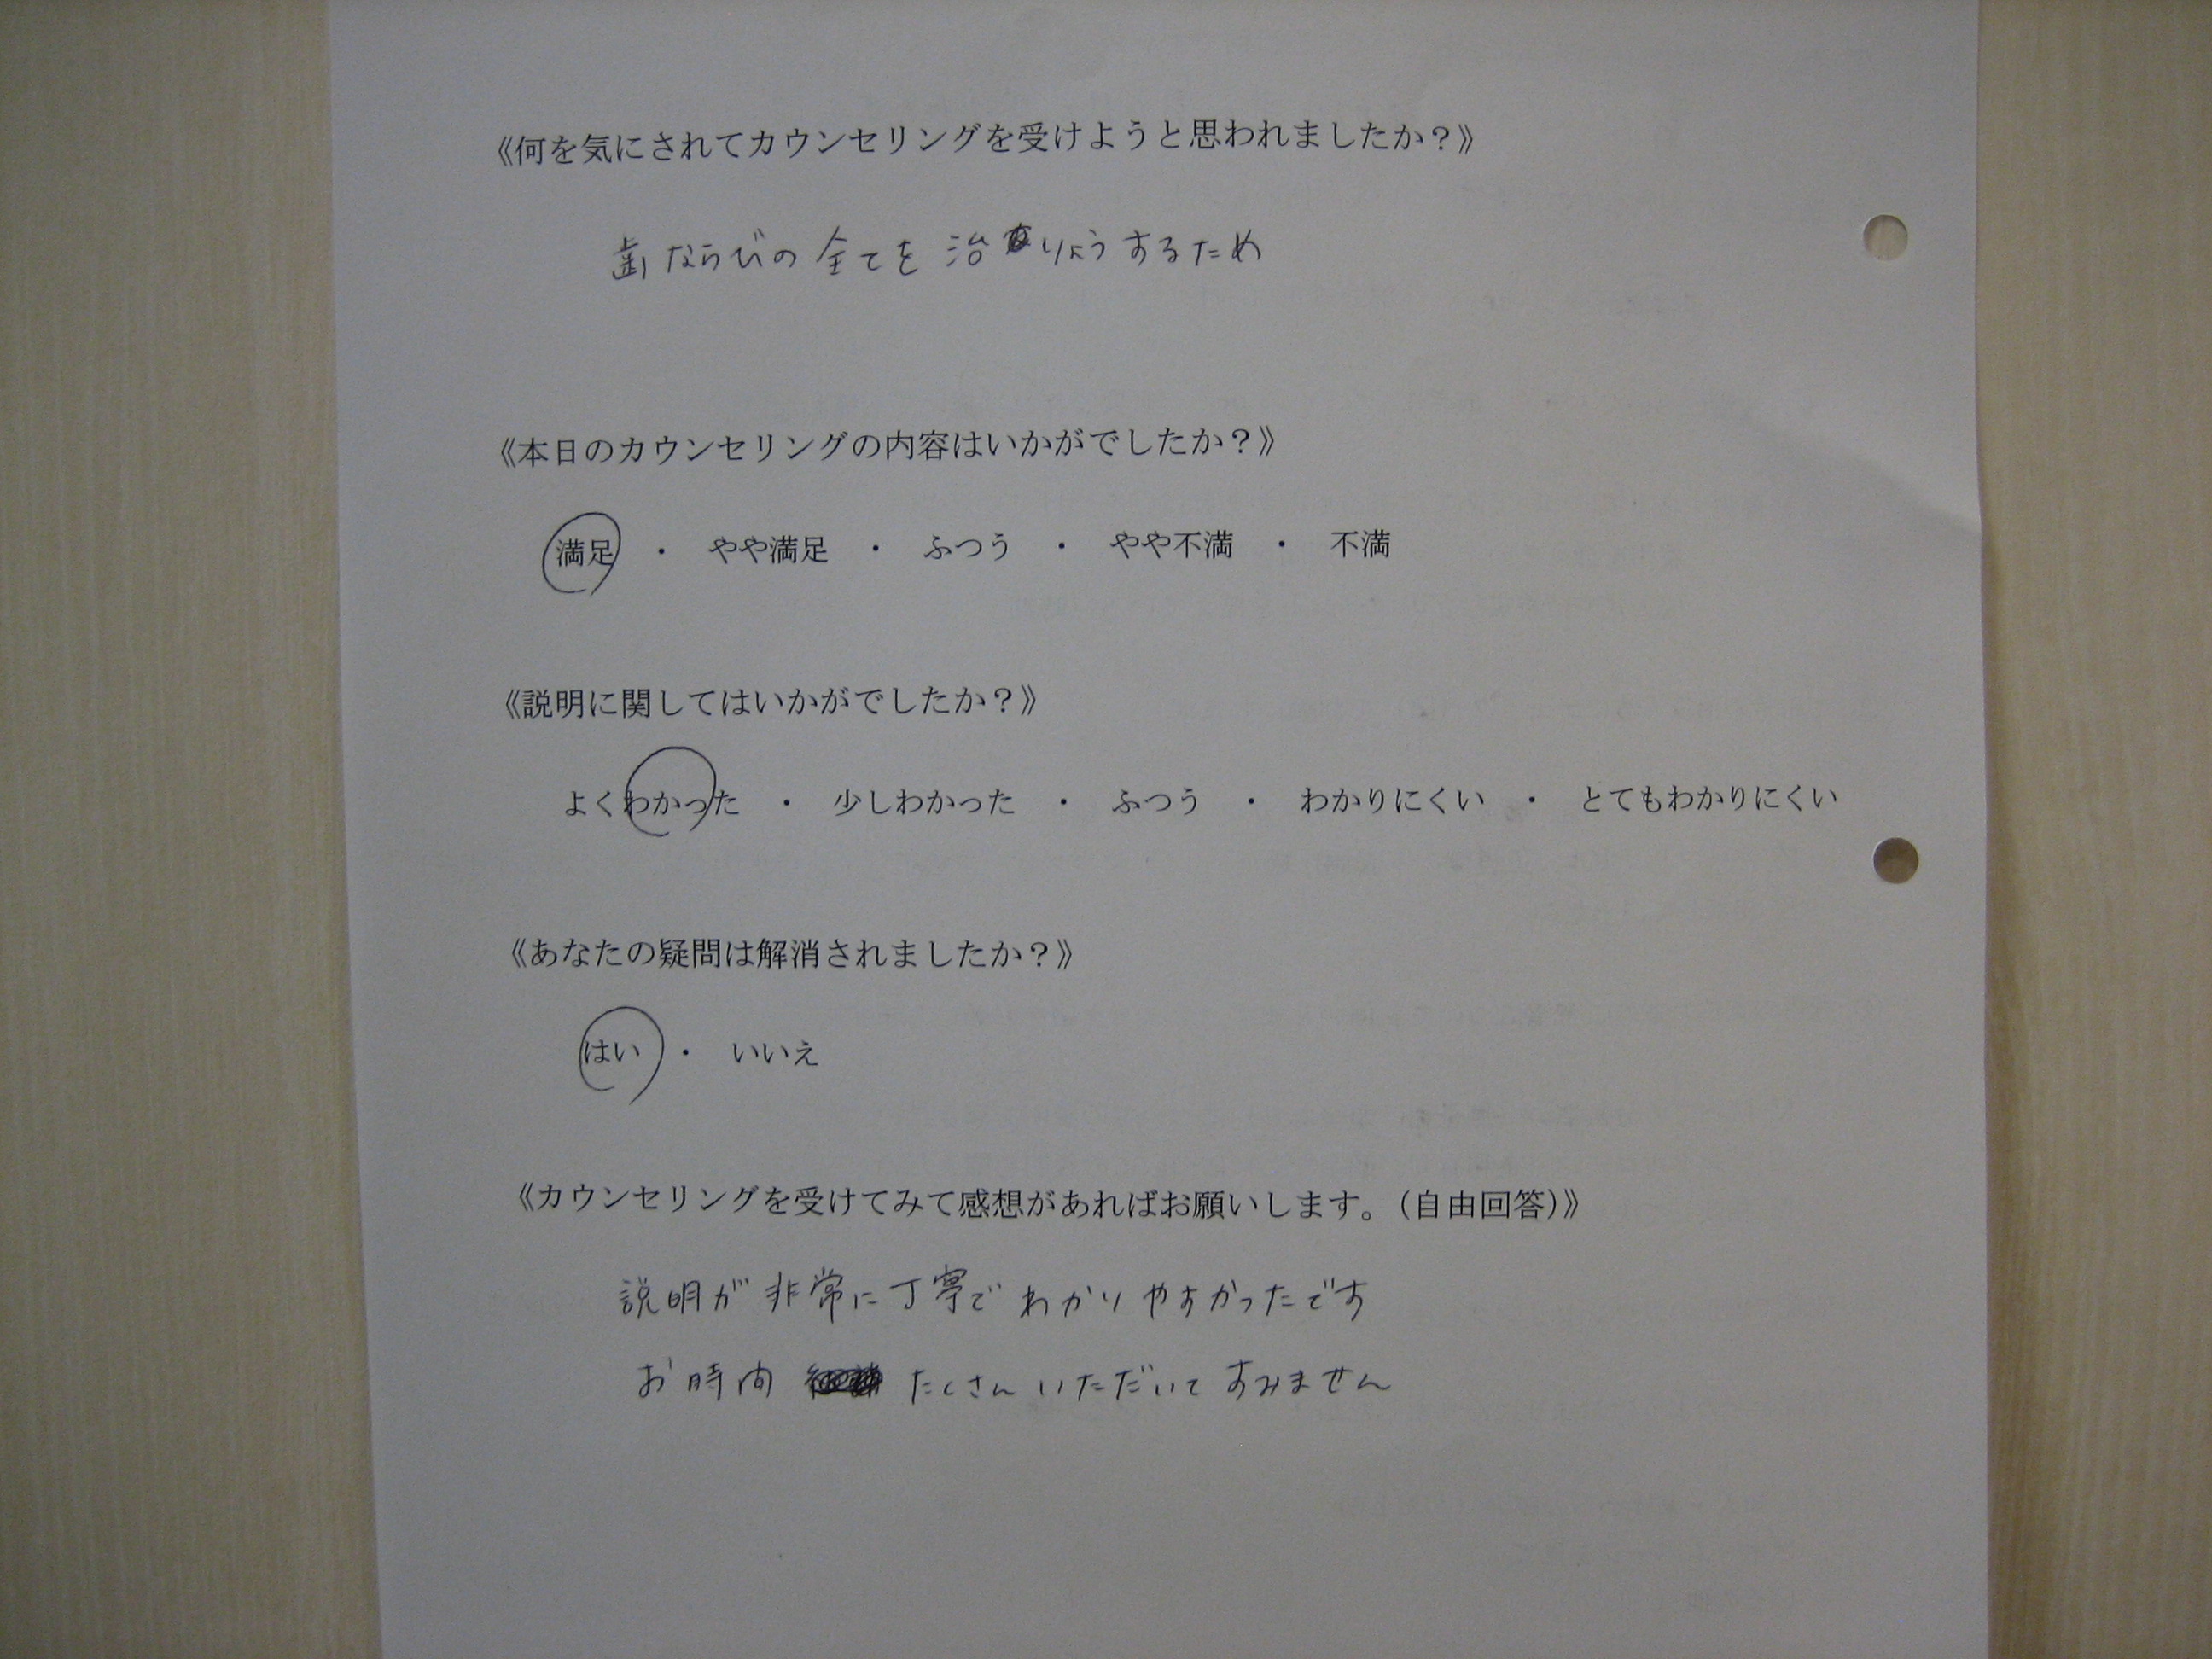 《何を気にされてカウンセリングを受けようと思われましたか？》
歯ならびの全てを治りょうするため
《本日のカウンセリングの内容はいかがでしたか？》
満足 ・ やや満足 ・ ふつう ・ やや不満 ・ 不満
《説明に関してはいかがでしたか？》
よくわかった ・ 少しわかった ・ ふつう ・ わかりにくい ・ とてもわかりにくい
《あなたの疑問は解消されましたか？》
はい ・ いいえ
《カウンセリングを受けてみて感想があればお願いします。（自由回答）》
説明が非常に丁寧でわかりやすかったです
お時間たくさんいただいてすみません